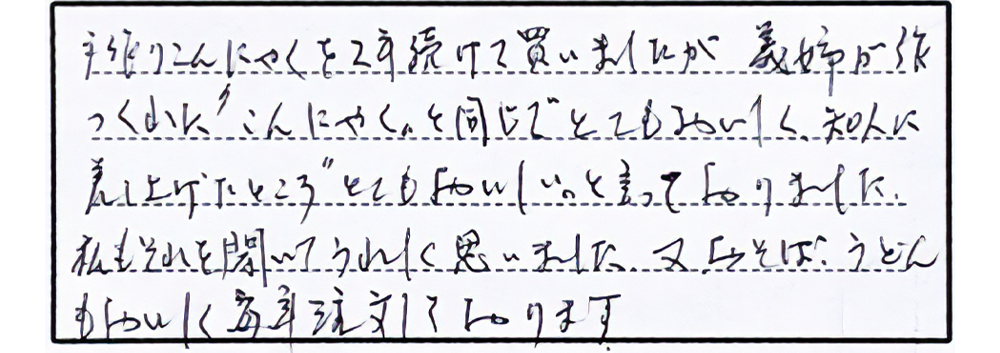 手作りこんにゃくを2年続けて買いましたが 義姉が作
つくれた"こんにゃく"と同じでとてもおいしく、知人に
差し上げたところ"とてもおいしい"と言っておりました。
私もそれを聞いてうれしく思いました。又、おそば、うどん
もおいしく毎年注文しております